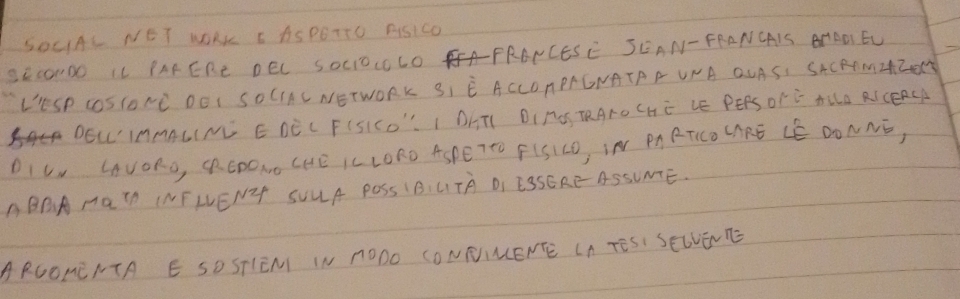 SOCIAL NET WORK E ASPETTO FISICO
SECONDO IL PARERE DEL SOCIOLOGO FRANCESE JEAN-FRANCAIS AMADIEU
"L'ESPLOSIONE DEI SOCIAL NETWORK SI È ACCOMPAGNATA A UNA QUASI
DELL'IMMAGINE E DEL FISICO". I DATI DIMOSTRANO CHE LE PERSONE ALLA RICERCA
DI UN LAVORO, CREDONO CHE IL LORO ASPETTO FISICO, IN PARTICOLARE LE DONNE,
ABBIA INFLUENZA SULLA POSSIBILITÀ DI ESSERE ASSUNTE.
ARGOMENTA E SOSTIENI IN MODO CONVINCENTE LA TESI SEGUENTE